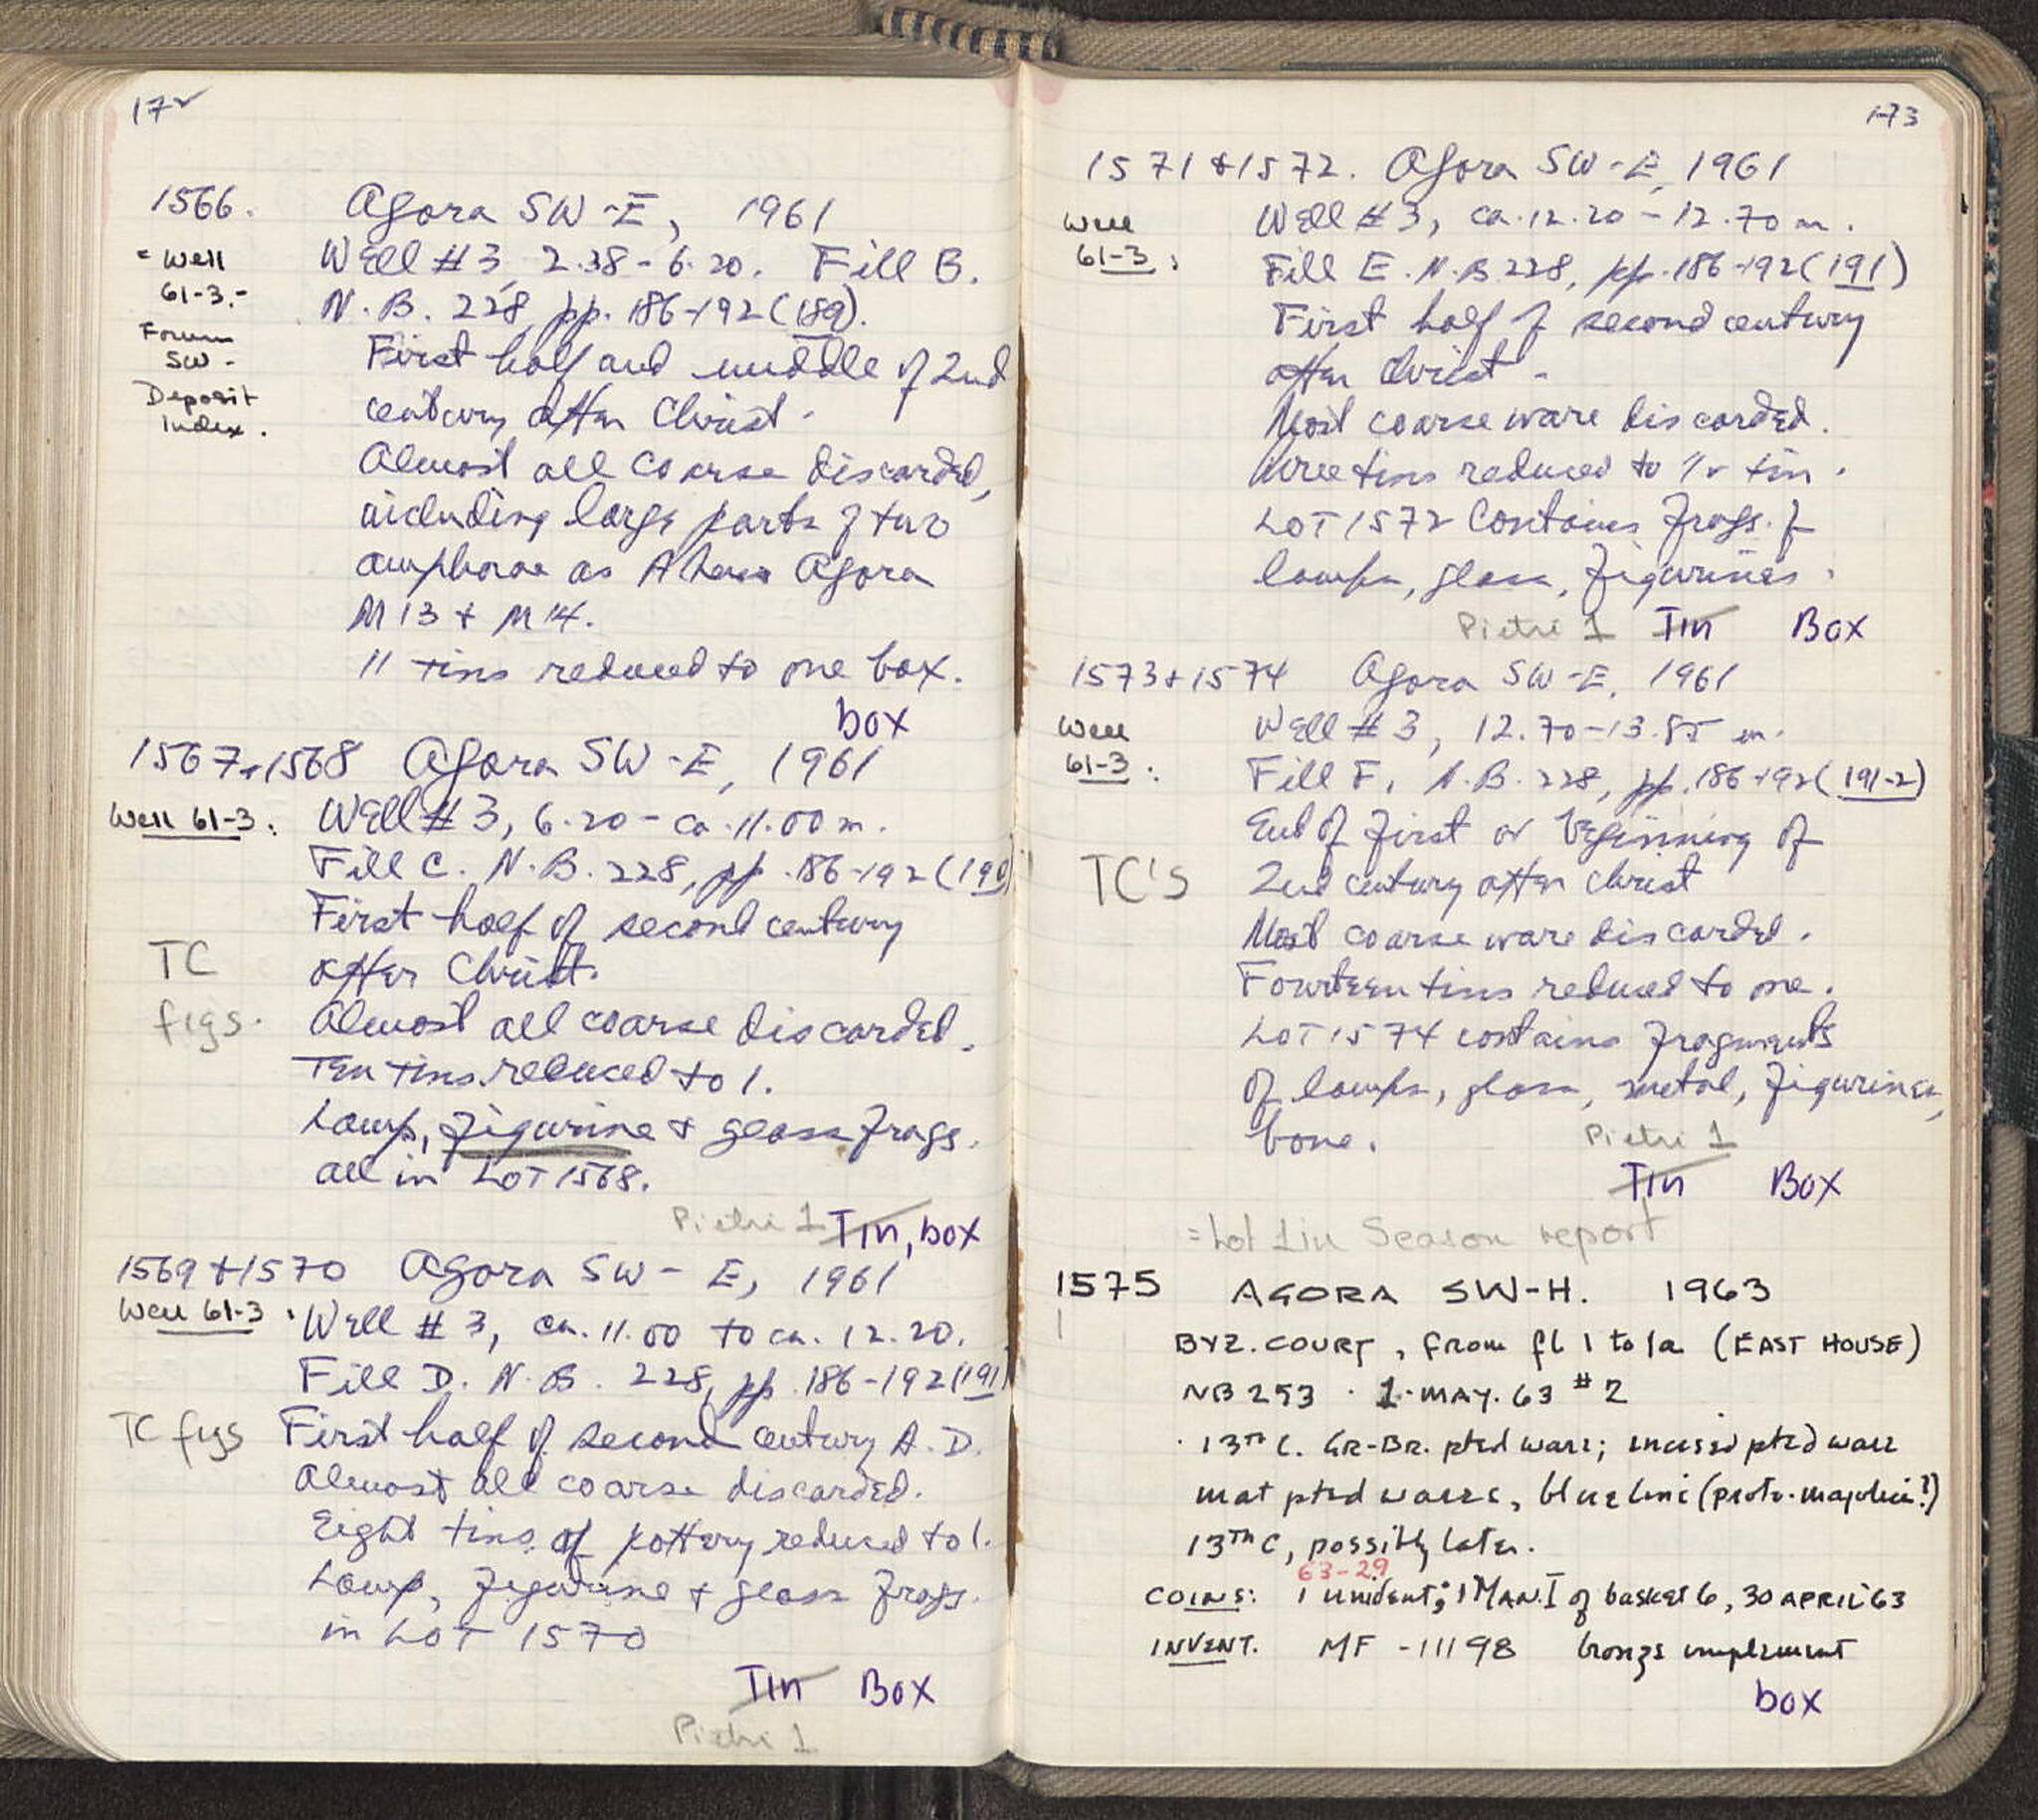 172
1566. Agora SW-E, 1961
= Well
61-3.-
Forum
SW-
Deposit
Index.
Well #3, 2.38-6.20. Fill B.
N.B. 228, pp. 186-192 (189).
First half and middle of 2nd
century after Christ.
Almost all coarse discarded,
including large parts of two
amphorae as Athens Agora
M 13 + M 14.
11 tins reduced to one box.
box
1567+1568 Agora SW-E, 1961
Well 61-3: Well #3, 6.20 - ca. 11.00 m.
Fill C. N.B. 228, pp. 186-192 (190)
First half of second century
after Christ.
TC
figs.
Almost all coarse discarded.
Ten tins reduced to 1.
Lamp, figurine + glass frags.
all in LOT 1568.
Pietri 1 Tin, box
1569+1570 Agora SW-E, 1961
Well 61-3: Well #3, ca. 11.00 to ca. 12.20.
Fill D. N.B. 228, pp. 186-192 (191)
TC figs First half of second century A.D.
Almost all coarse discarded.
Eight tins of pottery reduced to 1.
Lamp, figurine + glass frags.
in LOT 1570
Tin Box
Pietri 1
173
1571+1572. Agora SW-E, 1961
Well
61-3:
Well #3, ca. 12.20-12.70 m.
Fill E. N.B. 228, pp. 186-192 (191)
First half of second century
after Christ-
Most coarse ware discarded.
Three tins reduced to 1/2 tin.
LOT 1572 contains frags. of
lamps, glass, figurines.
Pietri 1 Tin Box
1573+1574 Agora SW-E, 1961
Well
61-3:
Well #3, 12.70-13.85 m.
Fill F. N.B. 228, pp. 186-192 (191-2)
End of first or beginning of
TC's 2nd century after Christ
Most coarse ware discarded.
Fourteen tins reduced to one.
LOT 1574 contains fragments
of lamps, glass, metal, figurines,
bone. Pietri 1
Tin Box
= Lot 1 in Season report
1575 AGORA SW-H. 1963
BYZ. COURT, from fl 1 to 1a (EAST HOUSE)
NB 253 . 1. MAY. 63 #2
. 13TH C. GR-BR. pted ware; incised pted ware
mat pted wares, blue line (proto-majolica?)
13TH C, possibly later.
63-29
COINS: 1 unident; 1 MAN. I of basket 6, 30 APRIL 63
INVENT. MF-11198 bronze implement
box